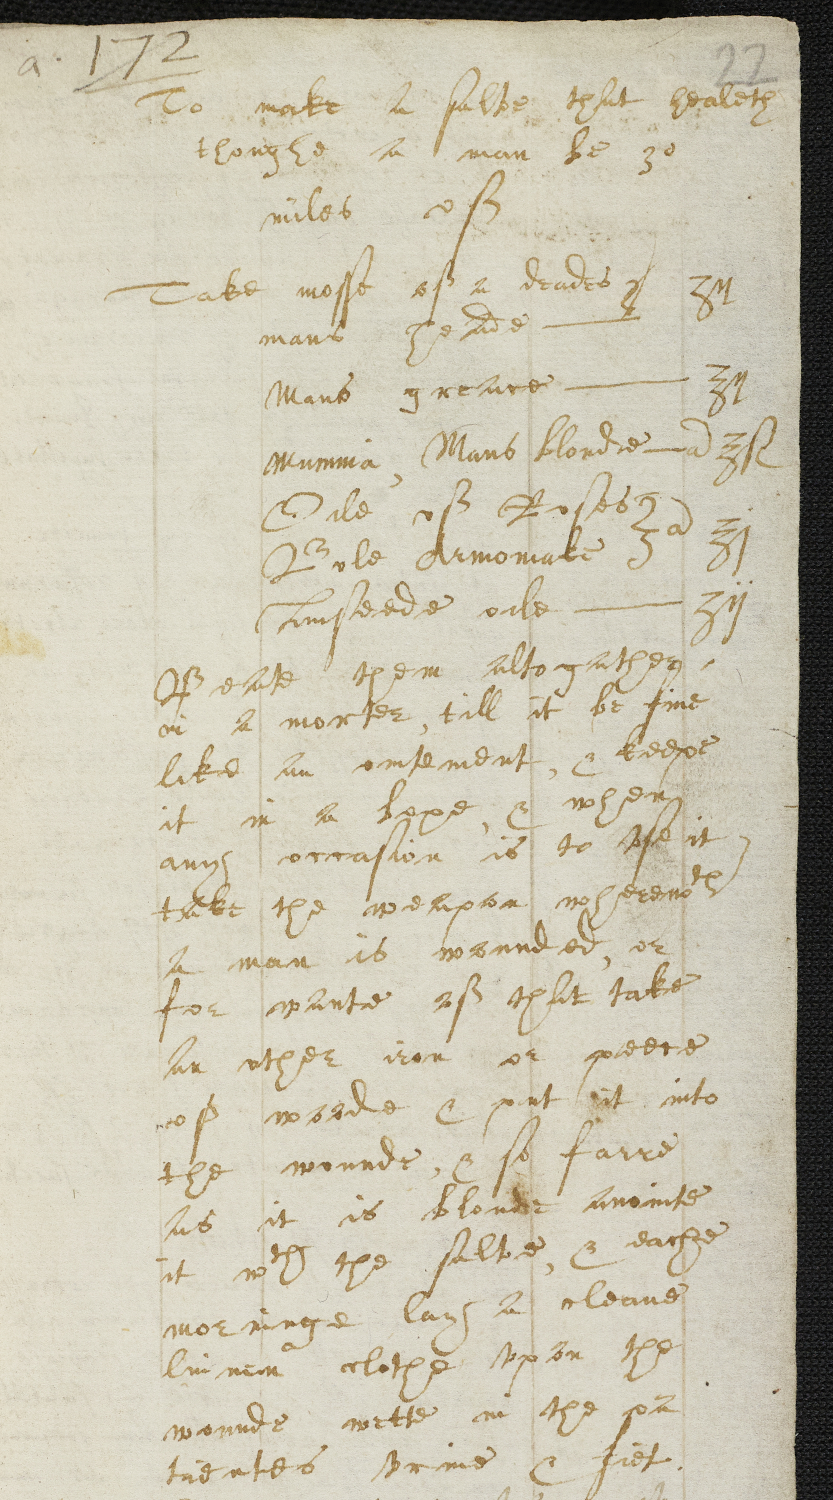 a. 172
22
To make a salve that healeth
thoughe a man be 30
miles off
Take mosse off a deades
mans heade ʒij
Mans greace ʒij
Mummia, Mans bloude a ʒß
Oile off Roses
Bole Armoniake a ʒj
Linseede oile ʒij
Beate them altogather,
in a morter, till it be fine
like an ointement, & keepe
it in a boxe, & when
any occasion is to vse it
take the weapon wherewth
a man is wounded, or
for wante off that take
an other iron or peece
off woode & put it into
the wounde, & so farre
as it is bloude anointe
it wth the salve, & eache
morninge lay a cleane
linnen clothe vpon the
wounde wette in the pa
tientes vrine & fiet.